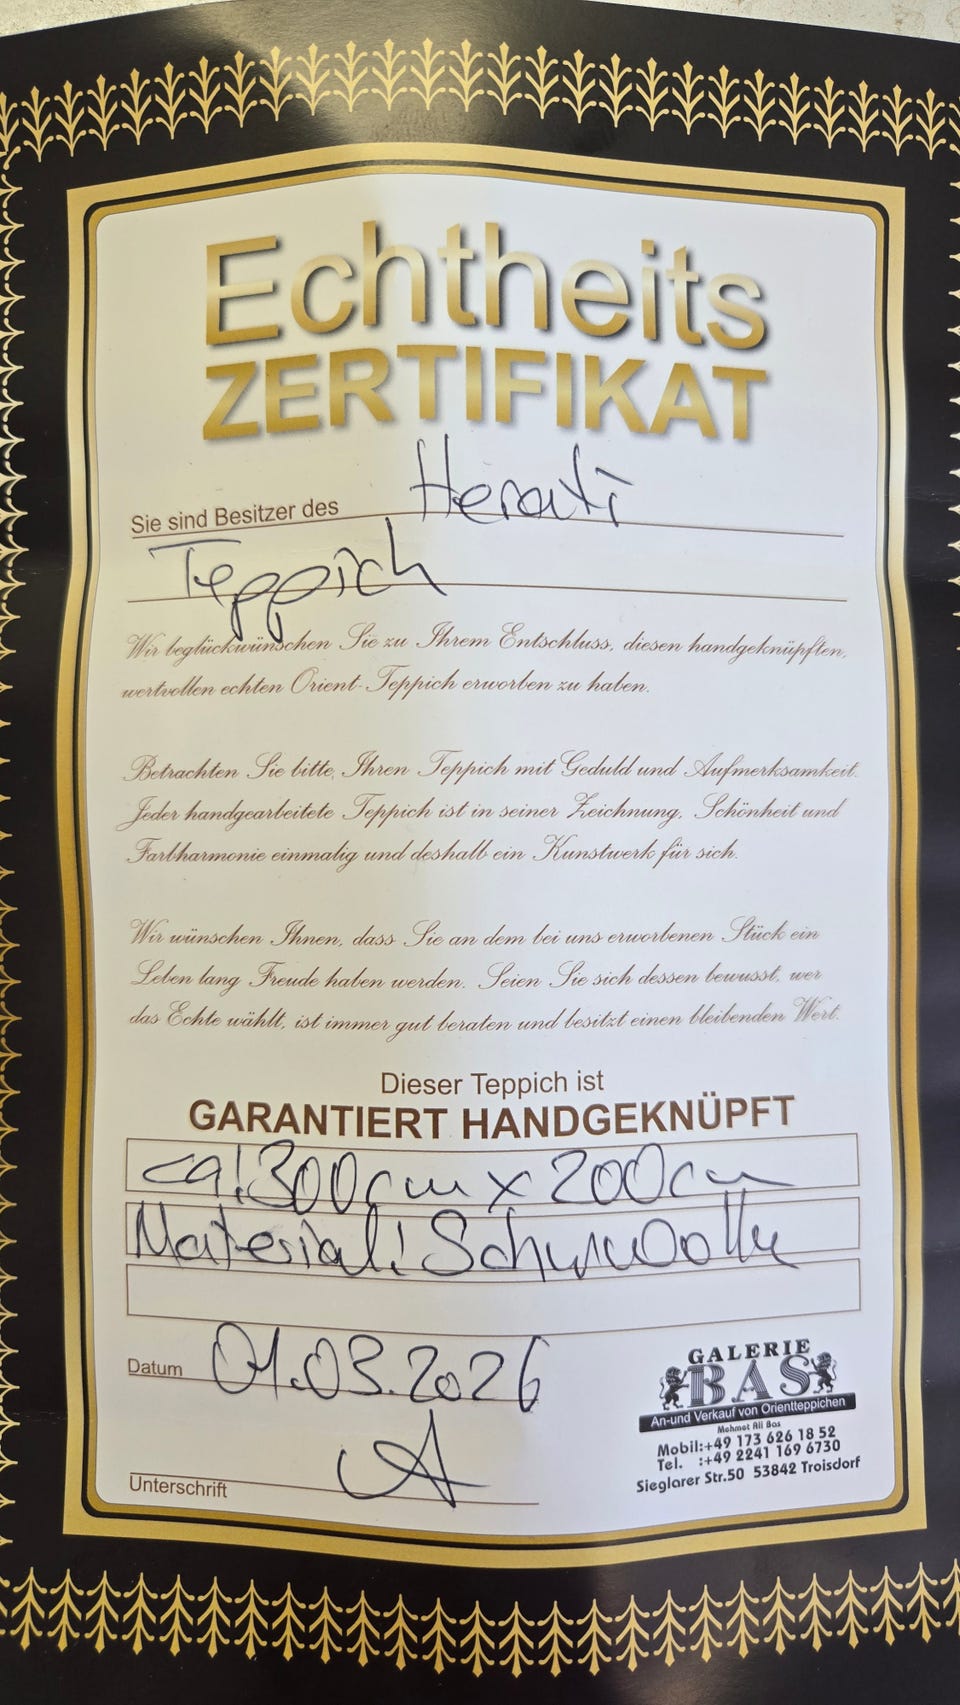 Echtheits
ZERTIFIKAT
Sie sind Besitzer des Herati
Teppich
Wir beglückwünschen Sie zu Ihrem Entschluss, diesen handgeknüpften,
wertvollen echten Orient-Teppich erworben zu haben.
Betrachten Sie bitte, Ihren Teppich mit Geduld und Aufmerksamkeit.
Jeder handgearbeitete Teppich ist in seiner Zeichnung, Schönheit und
Farbharmonie einmalig und deshalb ein Kunstwerk für sich.
Wir wünschen Ihnen, dass Sie an dem bei uns erworbenen Stück ein
Leben lang Freude haben werden. Seien Sie sich dessen bewusst, wer
das Echte wählt, ist immer gut beraten und besitzt einen bleibenden Wert.
Dieser Teppich ist
GARANTIERT HANDGEKNÜPFT
ca! 300cm x 200cm
Material! Schurwolle
Datum 01.03.2026
Unterschrift
GALERIE
BAS
An-und Verkauf von Orientteppichen
Mehmet Ali Bas
Mobil:+49 173 626 18 52
Tel. :+49 2241 169 6730
Sieglarer Str.50 53842 Troisdorf